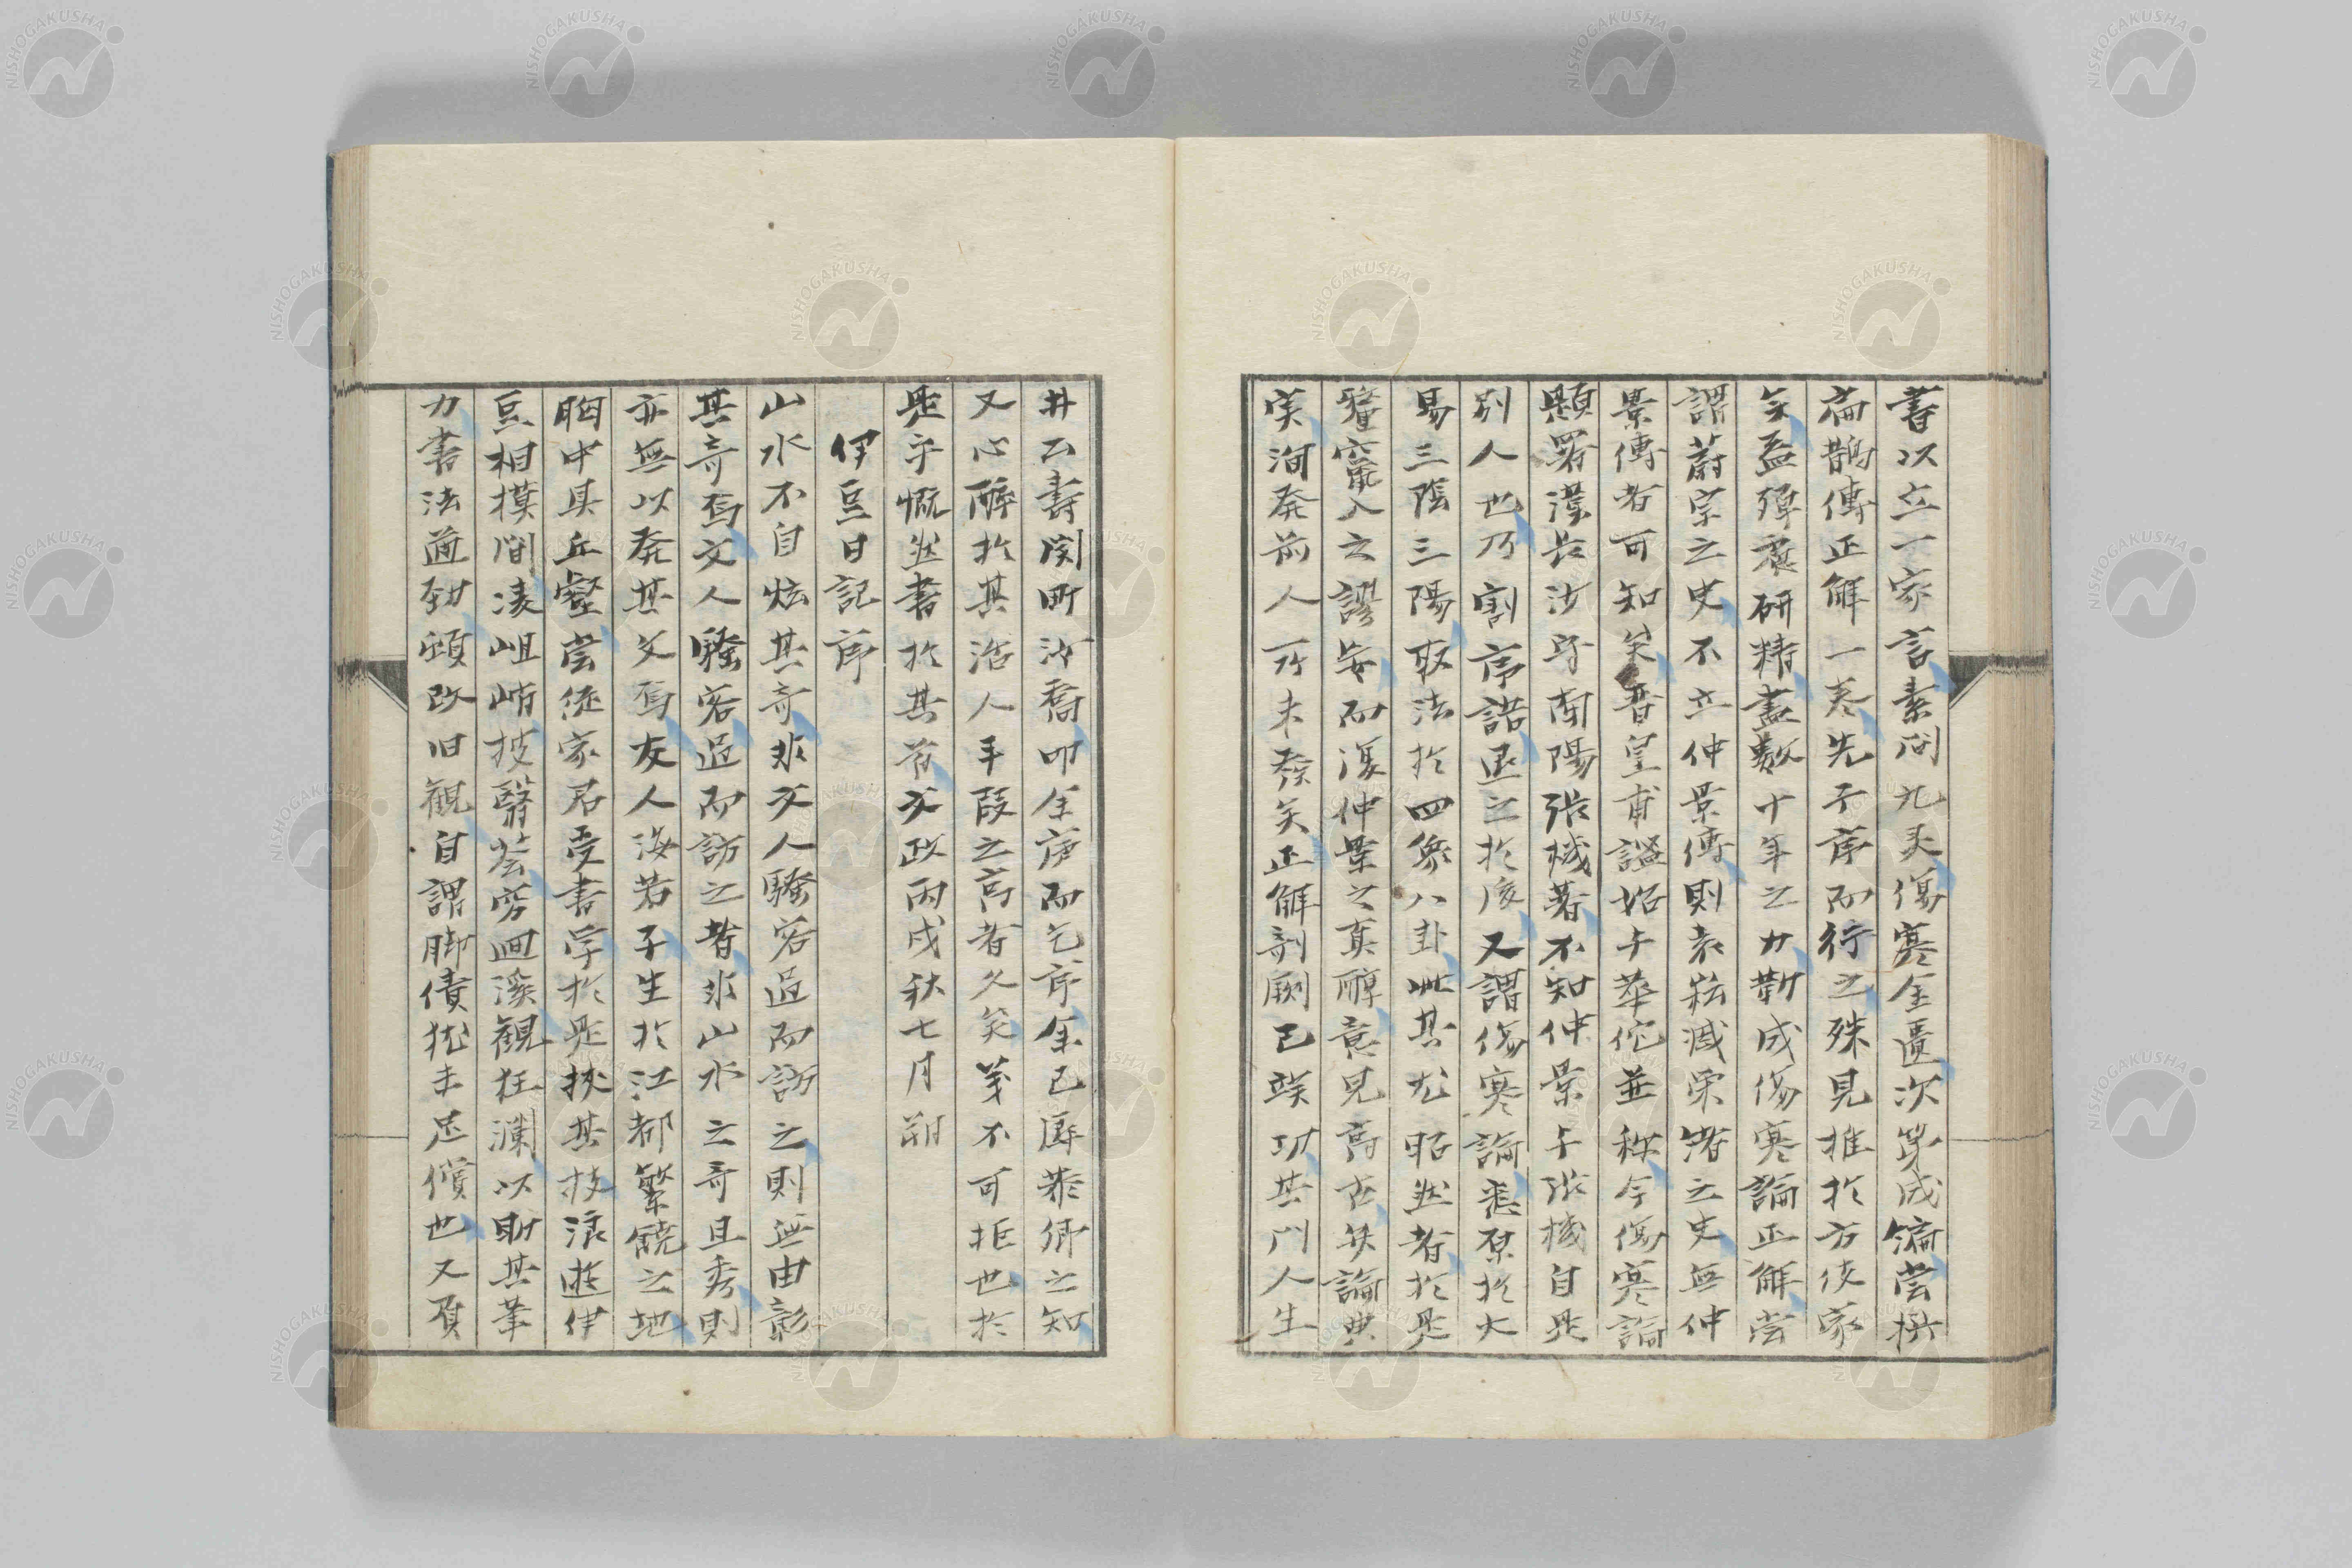 書以立一家言素問九炙傷寒金匱次第成編嘗撰
扁鵲傳正解一卷先子序而行之殊見推於方伎家
矣盖殫衷研精盡數十年之力勒成傷寒論正解嘗
謂蔚宗之史不立仲景傳則袁崧臧栄緒之史無仲
景傳者可知矣晋皇甫謐始与華佗並称今傷寒論
題署漢長沙守南陽張機著不知仲景与張機自是
別人也乃割序諾退之於後又謂傷寒論悉原於大
易三陰三陽取法於四象八卦此其尤昭然者於是
醫竄入之謬妄而復仲景之真醇意見高古矣論典
実洵発前人所未発矣正解剞劂已竣功其門人生
井公壽関町沙喬叩余廬而乞序余已辱恭卿之知
又心酔於其活人手段之高者久矣義不可拒也於
是乎慨然書於其首文政丙戌秋七月朔
伊豆日記序
山水不自炫其奇非文人騒客過而訪之則無由彰
其奇焉文人騒客過而訪之者非山水之奇且秀則
亦無以発其文焉友人海若子生於江都繁饒之地
胸中具丘壑嘗従家君受書学於是挾其技浪遊伊
豆相摸間凌岨峭披翳薈窮廻溪観狂瀾以助其筆
力書法遒勁頓改旧観自謂脚債猶未足償也又頁